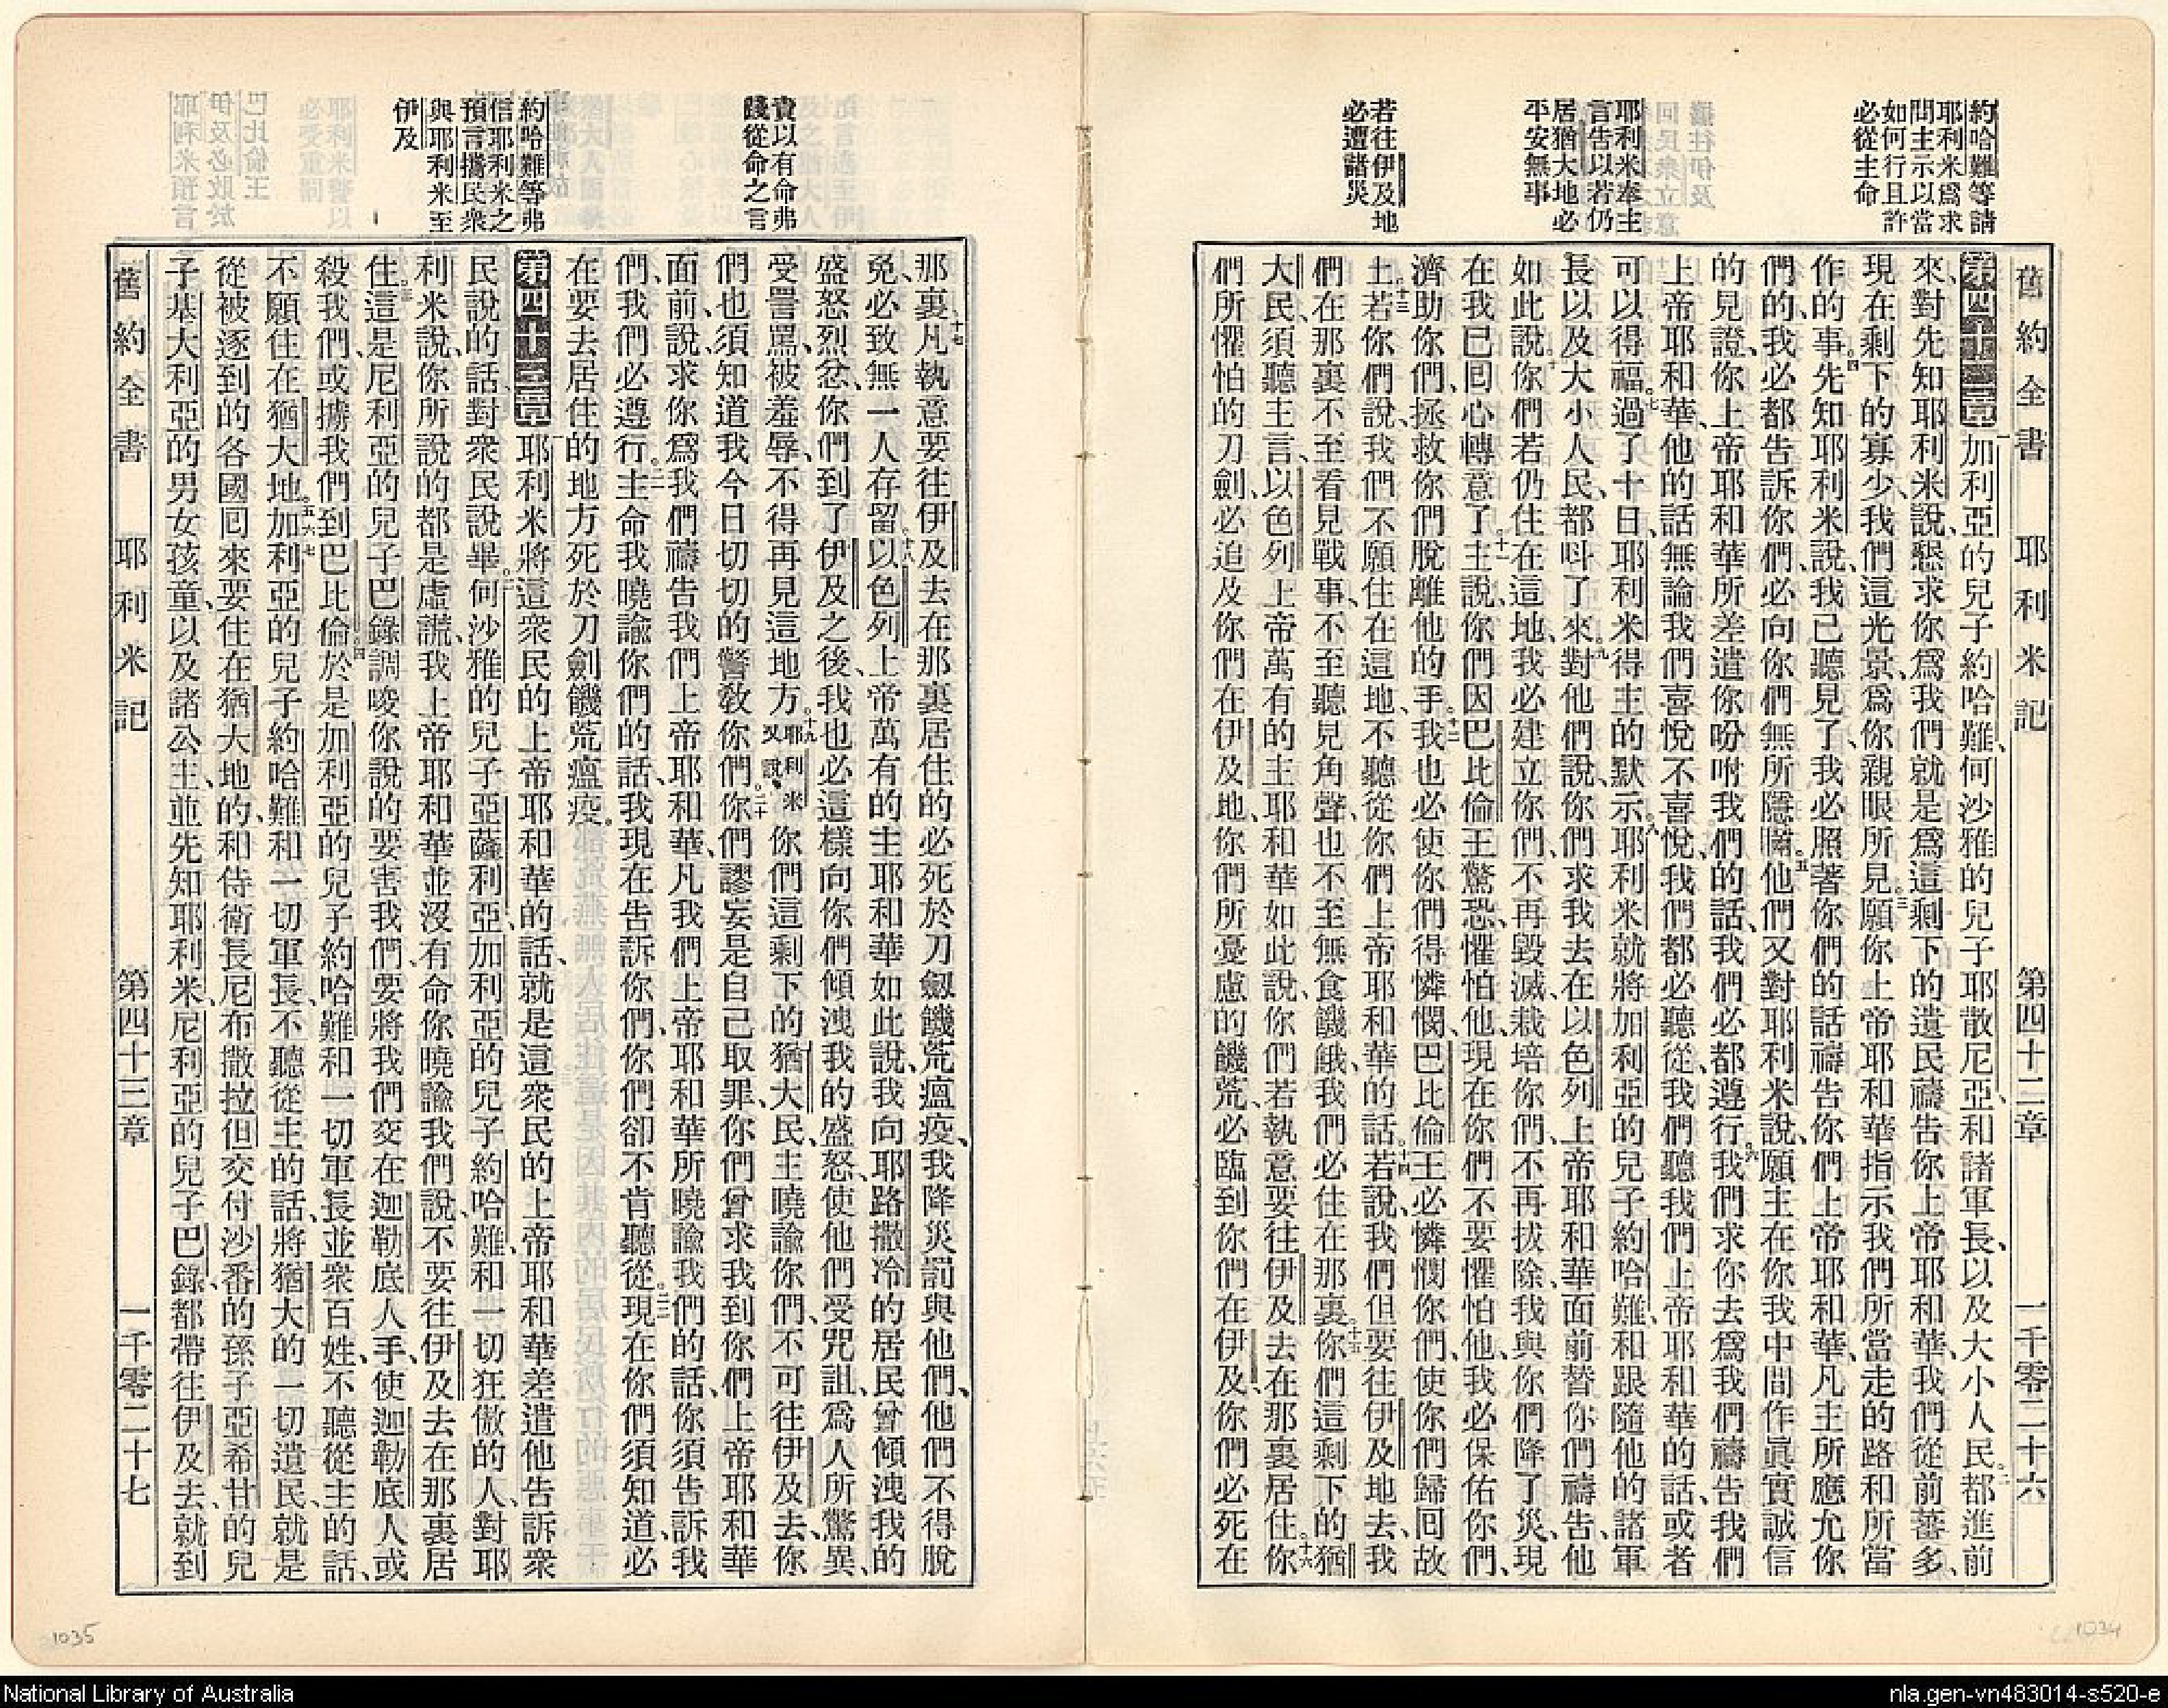 約哈難等請
耶利米爲求
問主示以當
如何行且許
必從主命
耶利米奉主
言告以若仍
居猶大地必
平安無事
若往伊及地
必遭諸災
舊約全書 耶利米記 第四十二章 一千零二十六
第四十二章 一加利亞的兒子約哈難、何沙雅的兒子耶散尼亞、和諸軍長、以及大小人民、都進前
來、對先知耶利米說、懇求你爲我們就是爲這剩下的遺民禱告你上帝耶和華、我們從前蕃多、
現在剩下的寡少、我們這光景、爲你親眼所見。三願你上帝耶和華指示我們所當走的路和所當
作的事。四先知耶利米說、我已聽見了、我必照著你們的話禱告你們上帝耶和華、凡主所應允你
們的、我必都告訴你們、必向你們無所隱瞞。五他們又對耶利米說、願主在你我中間作眞實誠信
的見證、你上帝耶和華所差遣你吩咐我們的話、我們必都遵行。六我們求你去爲我們禱告我們
上帝耶和華、他的話無論我們喜悅不喜悅、我們都必聽從、我們聽我們上帝耶和華的話、或者
可以得福。七過了十日、耶利米得主的默示。八耶利米就將加利亞的兒子約哈難、和跟隨他的諸軍
長以及大小人民、都呌了來。九對他們說、你們求我去在以色列上帝耶和華面前替你們禱告、他
如此說。十你們若仍住在這地、我必建立你們、不再毀滅、栽培你們、不再拔除、我與你們降了災、現
在我已囘心轉意了。十一主說、你們因巴比倫王驚恐、懼怕他、現在你們不要懼怕他、我必保佑你們、
濟助你們、拯救你們脫離他的手。十二我也必使你們得憐憫、巴比倫王必憐憫你們、使你們歸囘故
土。十三若你們說、我們不願住在這地、不聽從你們上帝耶和華的話。十四若說、我們但要往伊及地去、我
們在那裏不至看見戰事、不至聽見角聲、也不至無食饑餓、我們必住在那裏。十五你們這剩下的猶
大民、須聽主言、以色列上帝萬有的主耶和華如此說、你們若執意要往伊及去在那裏居住。十六你
們所懼怕的刀劍、必追及你們在伊及地、你們所憂慮的饑荒、必臨到你們在伊及、你們必死在
責以有命弗
踐從命之言
約哈難等弗
信耶利米之
預言攜民衆
與耶利米至
伊及
那裏。十七凡執意要往伊及去在那裏居住的必死於刀劒饑荒瘟疫、我降災罰與他們、他們不得脫
免、必致無一人存留。十八以色列上帝萬有的主耶和華如此說、我向耶路撒冷的居民曾傾洩我的
盛怒烈忿、你們到了伊及之後、我也必這樣向你們傾洩我的盛怒、使他們受咒詛、爲人所驚異、
受詈罵、被羞辱、不得再見這地方。十九耶利米又說、你們這剩下的猶大民、主曉諭你們、不可往伊及去、你
們也須知道我今日切切的警敎你們。二十你們謬妄是自己取罪、你們曾求我到你們上帝耶和華
面前、說、求你爲我們禱告我們上帝耶和華、凡我們上帝耶和華所曉諭我們的話、你須告訴我
們、我們必遵行。二一主命我曉諭你們的話、我現在告訴你們、你們卻不肯聽從。二二現在你們須知道、必
在要去居住的地方死於刀劍饑荒瘟疫。
第四十三章 一耶利米將這衆民的上帝耶和華的話、就是這衆民的上帝耶和華差遣他告訴衆
民說的話、對衆民說畢。二何沙雅的兒子亞薩利亞、加利亞的兒子約哈難、和一切狂傲的人、對耶
利米說、你所說的都是虛謊、我上帝耶和華並沒有命你曉諭我們說、不要往伊及去在那裏居
住。三這是尼利亞的兒子巴錄調唆你說的、要害我們、要將我們交在迦勒底人手、使迦勒底人或
殺我們、或擄我們到巴比倫。四於是加利亞的兒子約哈難和一切軍長並衆百姓、不聽從主的話、
不願住在猶大地。五六七加利亞的兒子約哈難和一切軍長、不聽從主的話、將猶大的一切遺民、就是
從被逐到的各國囘來要住在猶大地的、和侍衛長尼布撒拉但交付沙番的孫子亞希甘的兒
子基大利亞的男女孩童、以及諸公主、並先知耶利米、尼利亞的兒子巴錄、都帶往伊及去、就到
舊約全書 耶利米記 第四十三章 一千零二十七
1035
1034
National Library of Australia
nla.gen-vn483014-s520-e